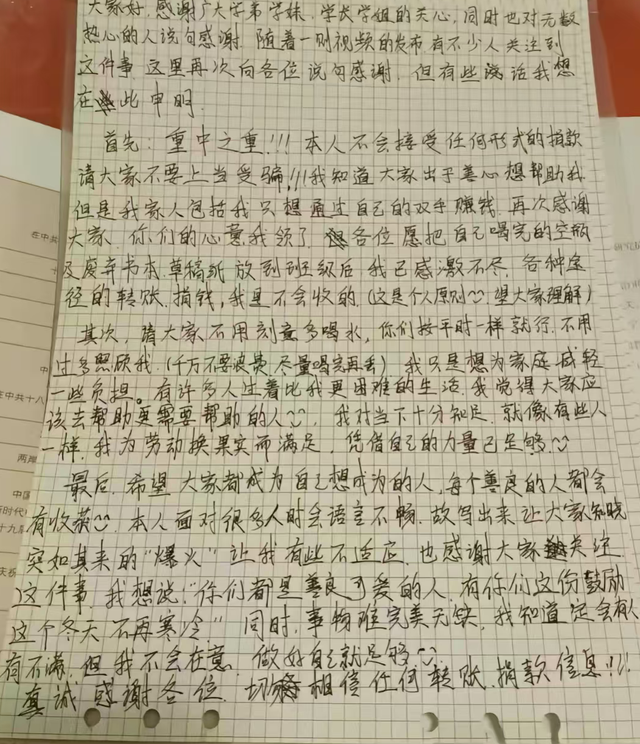 大家好，感谢广大学弟学妹、学长学姐的关心，同时也对无数
热心的人说句感谢，随着一则视频的发布有不少人关注到
这件事 这里再次向各位说句感谢，但有些话我想
在此申明
首先：重中之重！！！本人不会接受任何形式的捐款
请大家不要上当受骗！！！我知道大家出于善心想帮助我
但是我家人包括我只想通过自己的双手赚钱，再次感谢
大家，你们的心意我领了，各位愿把自己喝完的空瓶
及废弃书本、草稿纸放到班级后 我已感激不尽，各种途
径的转账、捐钱，我是不会收的，（这是个人原则，望大家理解）
其次，请大家不用刻意多喝水，你们按平时一样就行，不用
过多照顾我，（千万不要浪费，尽量喝完再丢）我只是想为家庭减轻
一些负担。有许多人过着比我更困难的生活，我觉得大家应
该去帮助更需要帮助的人，我对当下十分知足，就像有些人
一样，我为劳动换果实而满足，凭借自己的力量已足够
最后，希望大家都成为自己想成为的人，每个善良的人都会
有收获，本人面对很多人时会语言不畅，故写出来让大家知晓
突如其来的“爆火”让我有些不适应，也感谢大家关注
这件事，我想说：“你们都是善良可爱的人，有你们这份鼓励
这个冬天不再寒冷”同时，事物难完美无缺，我知道定会有人
有不满，但我不会在意，做好自己就足够
真诚感谢各位，切勿相信任何转账、捐款信息！！！
在中共
在中共十八
两岸
中国
新时代
十九届
庆祝